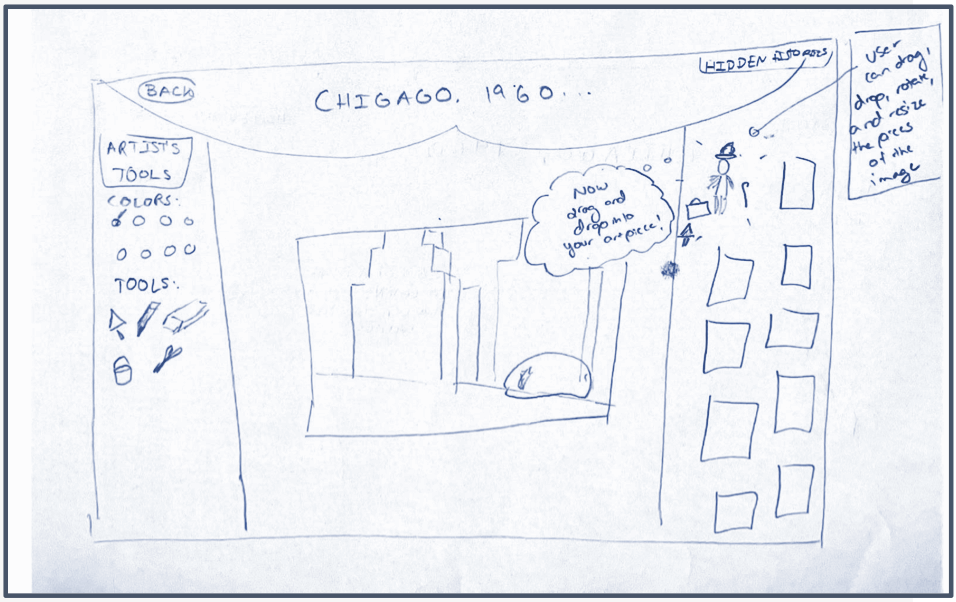 BACK
CHIGAGO, 1960...
HIDDEN HISTORIES
User
can drag,
drop, rotate,
and resize
the pieces
of the
image
ARTIST'S
TOOLS
COLORS:
TOOLS:
Now
drag and
drop into
your art piece!